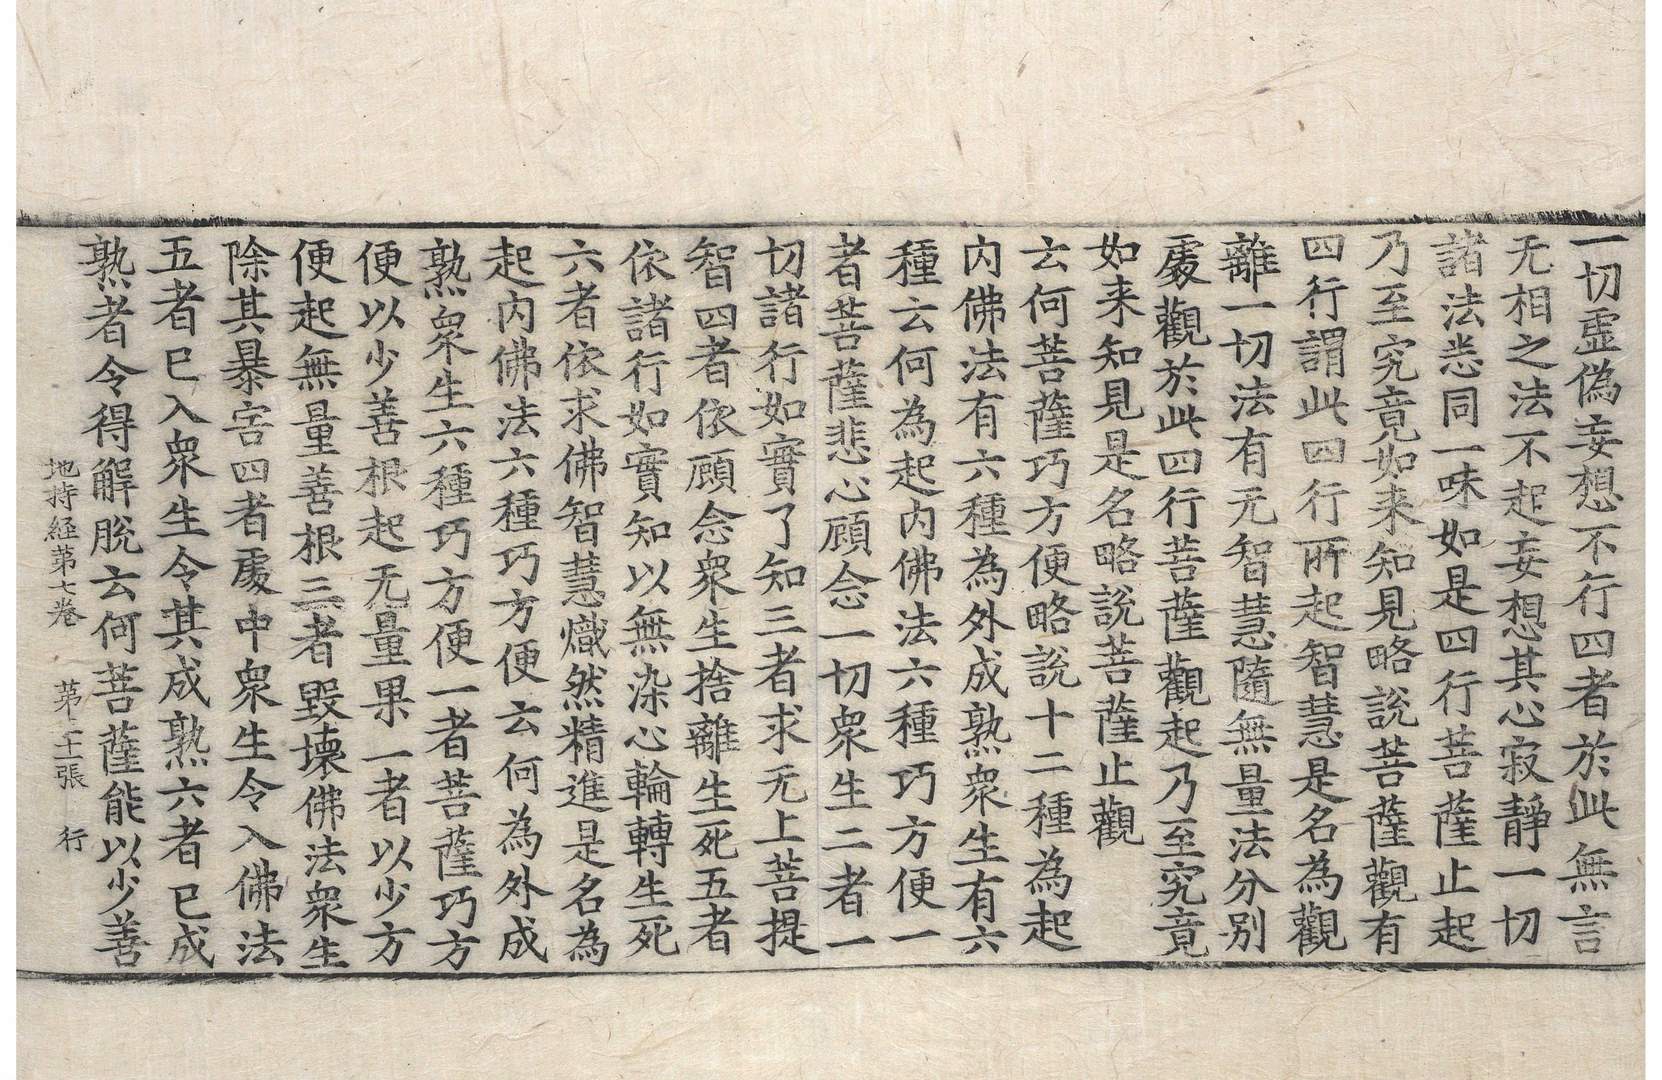 一切虛偽妄想不行四者於此無言
无相之法不起妄想其心寂靜一切
諸法悉同一味如是四行菩薩止起
乃至究竟如来知見略說菩薩觀有
四行謂此四行所起智慧是名為觀
離一切法有无智慧隨無量法分别
處觀於此四行菩薩觀起乃至究竟
如来知見是名略說菩薩止觀
云何菩薩巧方便略說十二種為起
内佛法有六種為外成熟衆生有六
種云何為起内佛法六種巧方便一
者菩薩悲心顧念一切衆生二者一
切諸行如實了知三者求无上菩提
智四者依顧念衆生捨離生死五者
依諸行如實知以無染心輪轉生死
六者依求佛智慧熾然精進是名為
起内佛法六種巧方便云何為外成
熟衆生六種巧方便一者菩薩巧方
便以少善根起无量果一者以少方
便起無量善根三者毀壞佛法衆生
除其暴害四者處中衆生令入佛法
五者已入衆生令其成熟六者已成
熟者令得解脫云何菩薩能以少善
地持經第七卷 第二十張 行